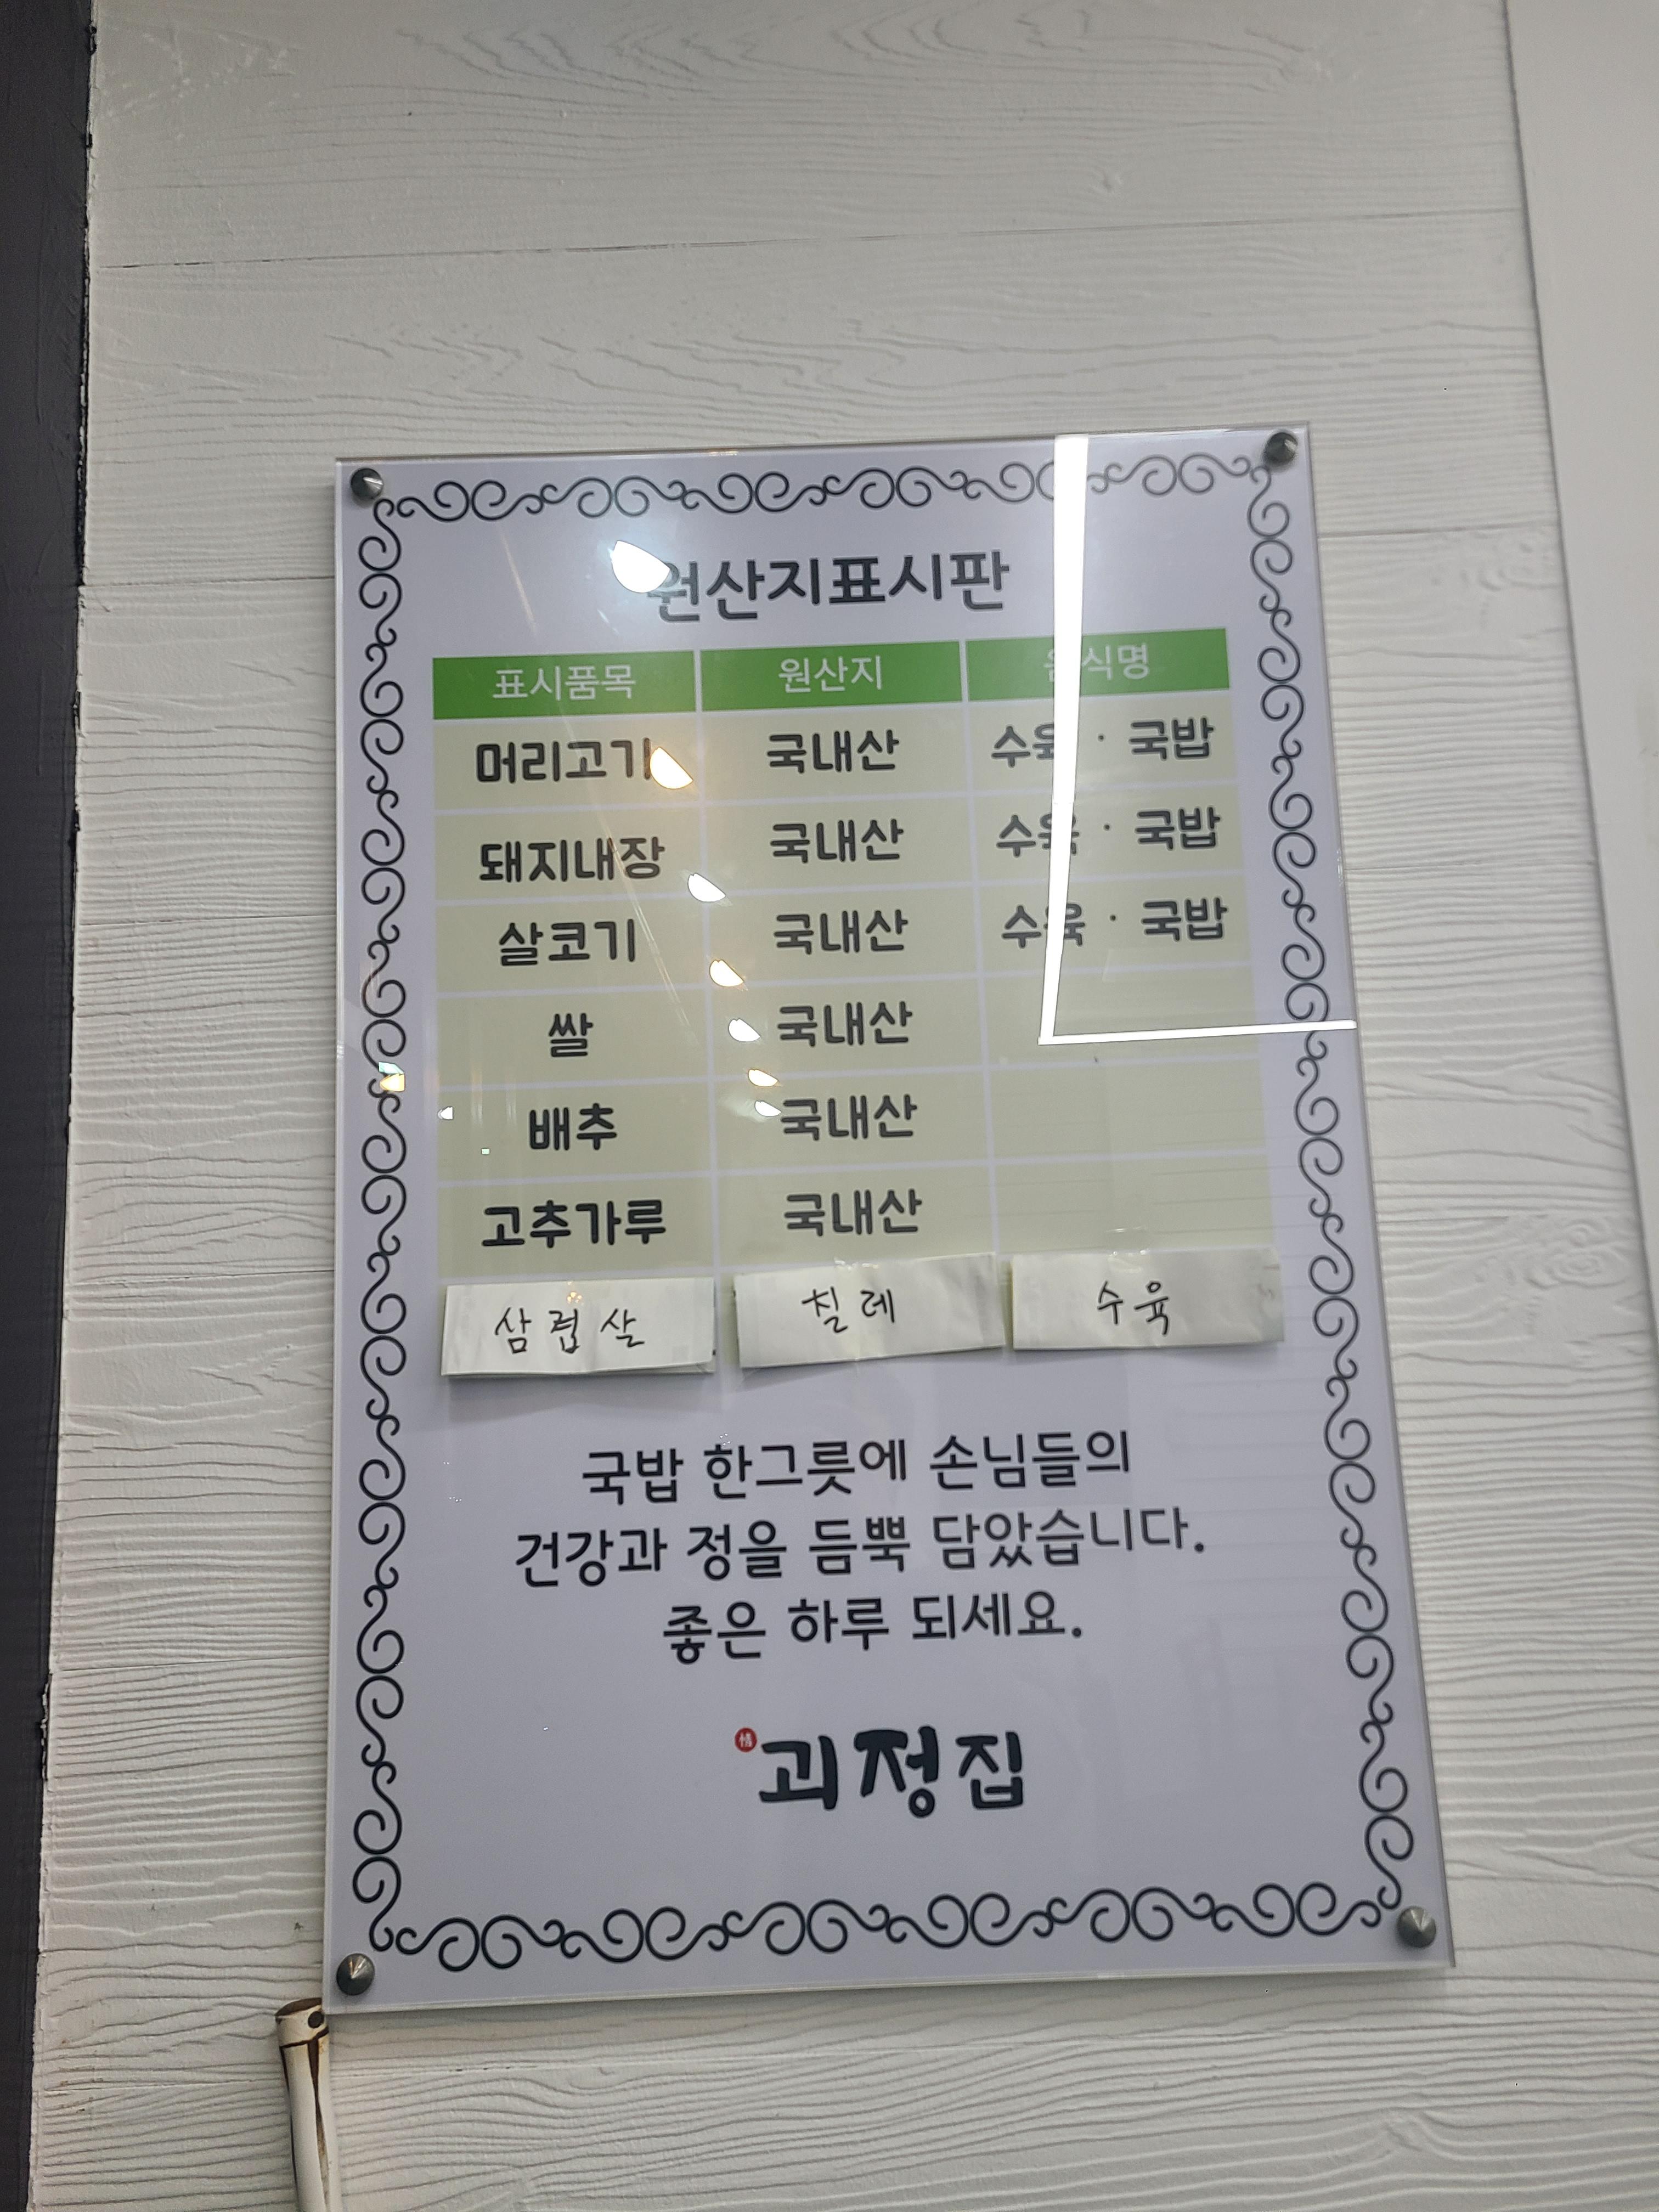 원산지표시판
표시품목 원산지 음식명
머리고기 국내산 수육 · 국밥
돼지내장 국내산 수육 · 국밥
살코기 국내산 수육 · 국밥
쌀 국내산
배추 국내산
고추가루 국내산
삼렵살 칠레 수육
국밥 한그릇에 손님들의
건강과 정을 듬뿍 담았습니다.
좋은 하루 되세요.
情 괴정집